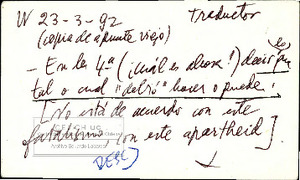 W 23-3-92 Traductor
(copia de apunte viejo)
- En la 4ª (¿cuál es ahora?) decir
tal o cual "debió" hacer o puede.
[No está de acuerdo con este
fatalismo, con este apartheid].
DESC